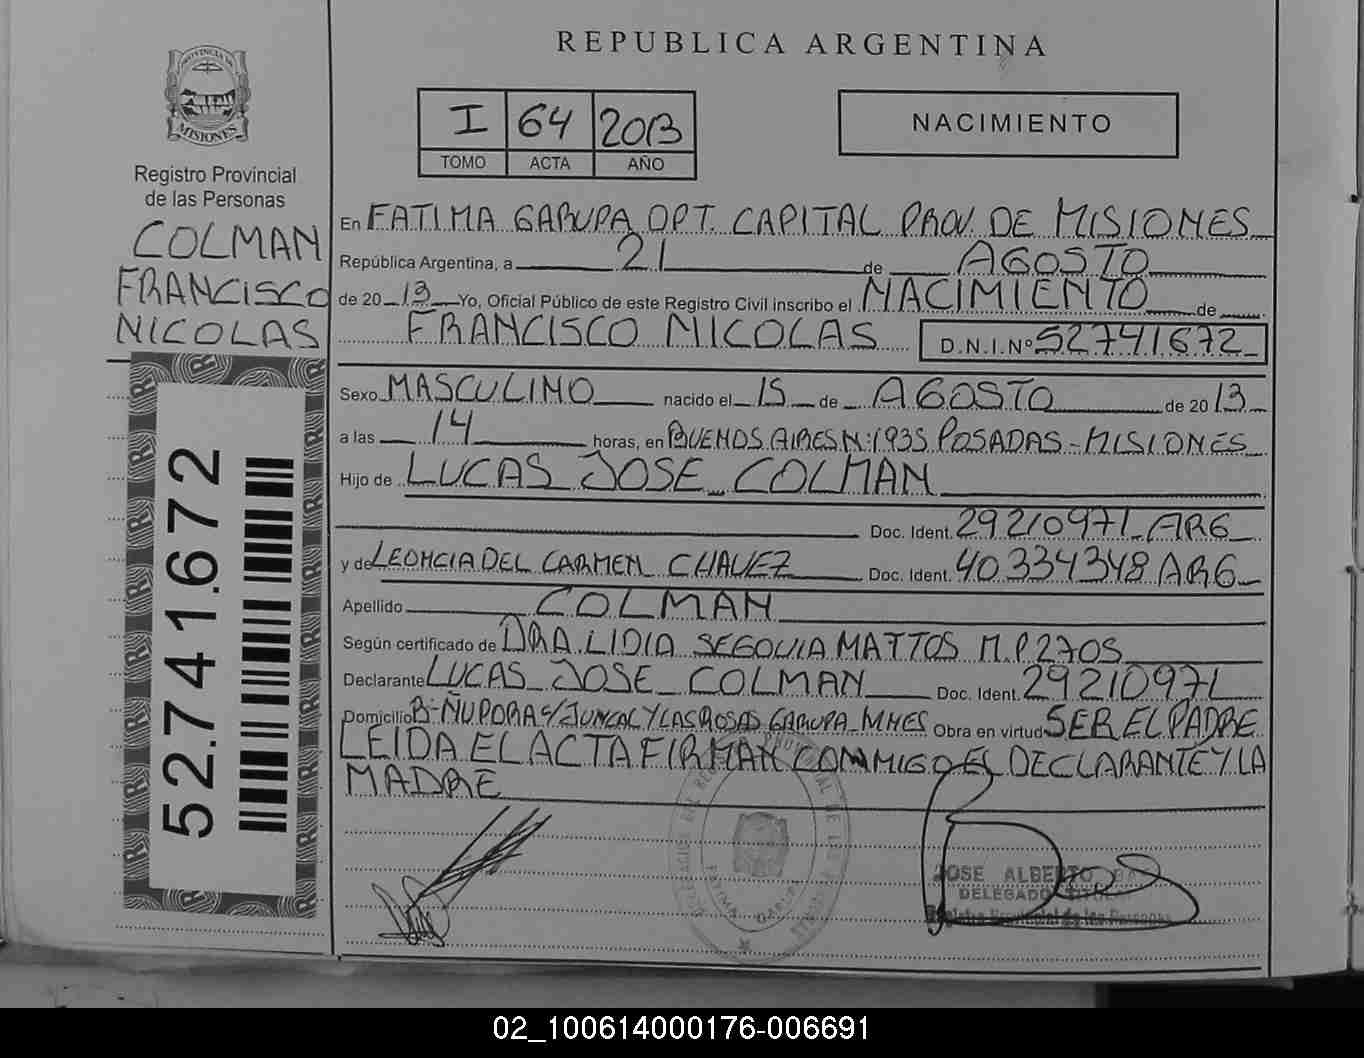 REPUBLICA ARGENTINA
PROVINCIA DE
MISIONES
Registro Provincial
de las Personas
COLMAN
FRANCISCO
NICOLAS
52.741.672
I 64 2013
TOMO ACTA AÑO
NACIMIENTO
En FATIMA GARUPA DPT. CAPITAL PROV. DE MISIONES
República Argentina, a 21 de AGOSTO
de 20 13 Yo, Oficial Público de este Registro Civil inscribo el NACIMIENTO de
FRANCISCO NICOLAS D.N.I.Nº 52741672
Sexo MASCULINO nacido el 15 de AGOSTO de 20 13
a las 14 horas, en BUENOS AIRES N:1935 POSADAS-MISIONES
Hijo de LUCAS JOSE COLMAN
Doc. Ident. 29210971 ARG
y de LEONCIA DEL CARMEN CHAVEZ Doc. Ident. 40334348 ARG
Apellido COLMAN
Según certificado de DRA. LIDIA SEGOVIA MATTOS M.P 2705
Declarante LUCAS JOSE COLMAN Doc. Ident. 29210971
Domicilio B-ÑU PORA S/JUNCAL Y LAS ROSAS GARUPA MNES Obra en virtud SER EL PADRE
LEIDA EL ACTA FIRMAN CONMIGO EL DECLARANTE Y LA
MADRE
JOSE ALBERTO
DELEGADO TITULAR
Registro Provincial de las Personas
02_100614000176-006691